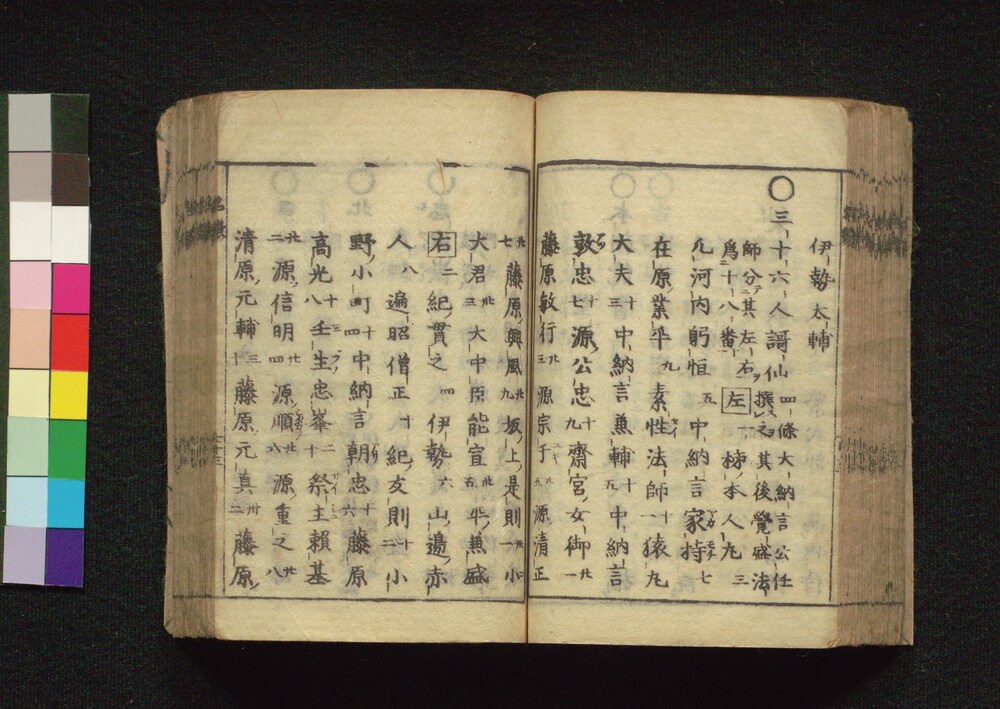 伊勢太輔
○三十六人謌仙 四條大納言公任撰之其後覺盛法
師分其左右爲十八番 左 一 柿本人丸 三
凡河内躬恒 五 中納言家持 七
在原業平 九 素性法師 十一 猿丸
大夫 十三 中納言兼輔 十五 中納言
敦忠 十七 源公忠 十九 齋宮女御 廿一
藤原敏行 廿三 源宗于 廿五 源清正
廿七 藤原興風 廿九 坂上是則 卅一 小
大君 卅三 大中臣能宣 卅五 平兼盛
右 二 紀貫之 四 伊勢 六 山邊赤
人 八 遍昭僧正 十 紀友則 十二 小
野小町 十四 中納言朝忠 十六 藤原
高光 十八 壬生忠峯 二十 祭主頼基
廿二 源信明 廿四 源順 廿六 源重之 廿八
清原元輔 三十 藤原元真 卅二 藤原